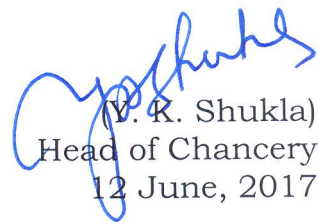 (Y. K. Shukla)
Head of Chancery
12 June, 2017